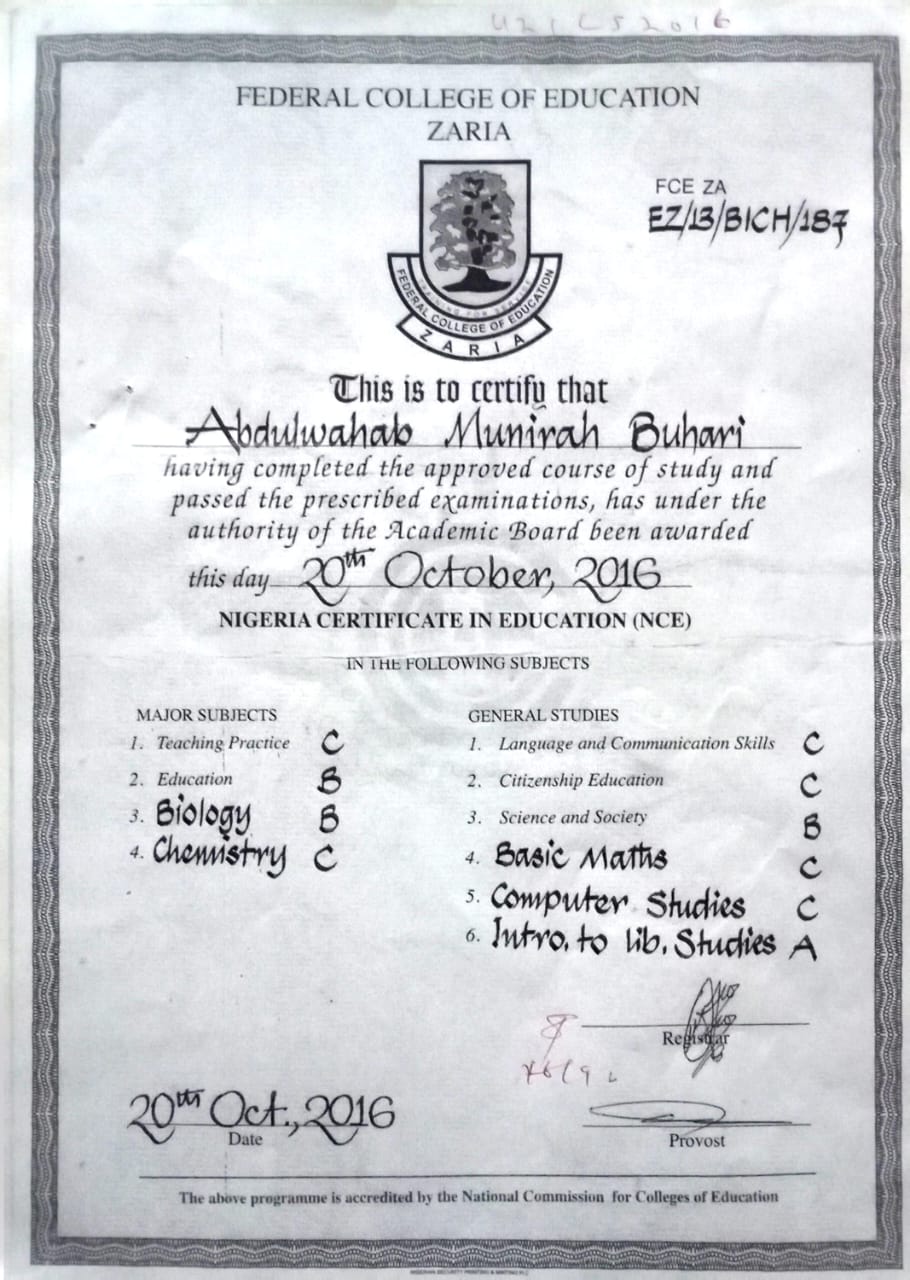 FEDERAL COLLEGE OF EDUCATION
ZARIA
FCE ZA
EZ/13/BICH/187
FEDERAL COLLEGE OF EDUCATION
ZARIA
This is to certify that
Abdulwahab Munirah Buhari
having completed the approved course of study and
passed the prescribed examinations, has under the
authority of the Academic Board been awarded
this day 20th October, 2016
NIGERIA CERTIFICATE IN EDUCATION (NCE)
IN THE FOLLOWING SUBJECTS
MAJOR SUBJECTS
1. Teaching Practice C
2. Education B
3. Biology B
4. Chemistry C
GENERAL STUDIES
1. Language and Communication Skills C
2. Citizenship Education C
3. Science and Society B
4. Basic Maths C
5. Computer Studies C
6. Intro. to lib. Studies A
Registrar
20th Oct., 2016
Date
Provost
The above programme is accredited by the National Commission for Colleges of Education